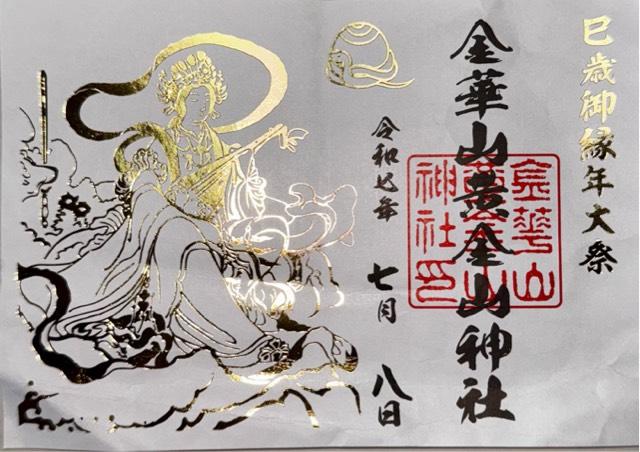 巳歳御縁年大祭
金華山黄金山神社
金華山黄金山神社印
令和七年
七月
八日